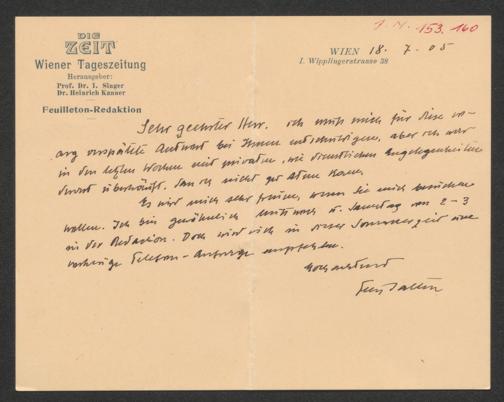 I. N. 153.160
DIE
ZEIT
Wiener Tageszeitung
Herausgeber:
Prof. Dr. I. Singer
Dr. Heinrich Kanner
Feuilleton-Redaktion
WIEN 18. 7. 05
I. Wipplingerstrasse 38
Sehr geehrter Herr. ich muß mich für diese so
arg verspätete Antwort bei Ihnen entschuldigen, aber ich war
in den letzten Wochen mit privaten, wie dienstlichen Angelegenheiten
derart überhäuft, dass ich nicht zu Atem kam.
Es wird mich sehr freuen, wenn Sie mich besuchen
wollen. Ich bin gewöhnlich Mittwoch u. Samstag von 2-3
in der Redaktion. Doch wird sich in dieser Sommerszeit eine
vorherige Telefon-Anfrage empfehlen.
Hochachtend
Felix Salten